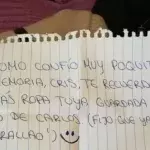 COMO CONFÍO MUY POQUIT
EMORIA, CRIS, TE RECUERD
ÁS ROPA TUYA GUARDADA
O DE CARLOS (FIJO QUE YA
RALLAO")